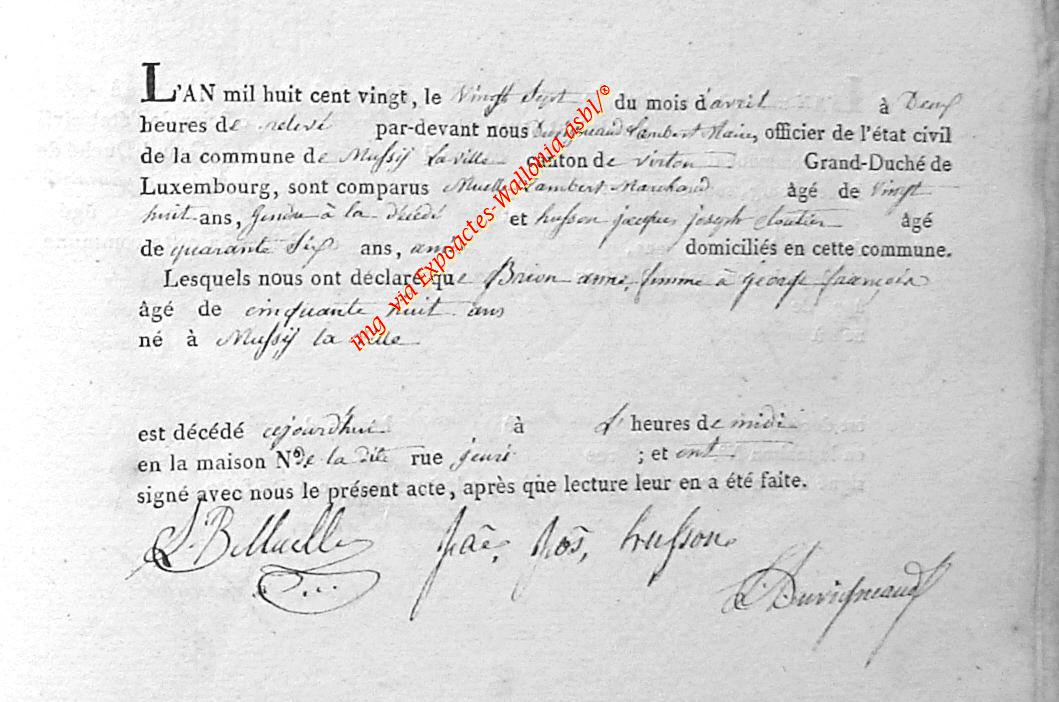 L'AN mil huit cent vingt, le Vingt Sept du mois d'avril à Deux
heures de relevé par-devant nous Duvigneaud Lambert Maire, officier de l'état civil
de la commune de Mussÿ la ville canton de virton Grand-Duché de
Luxembourg, sont comparus Muelle Lambert Marchand âgé de Vingt
huit ans, Gendre à la décédé et husson jacques joseph cloutier âgé
de quarante Six ans, domiciliés en cette commune.
Lesquels nous ont déclaré que Brion anne, femme à george françois
âgé de cinquante huit ans
né à Mussÿ la ville
est décédé cejourd'hui à heures de midi
en la maison N° de la dite rue ; et ont
signé avec nous le présent acte, après que lecture leur en a été faite.
husson
L. Duvigneaud
img via Expoactes-Wallonia asbl/®